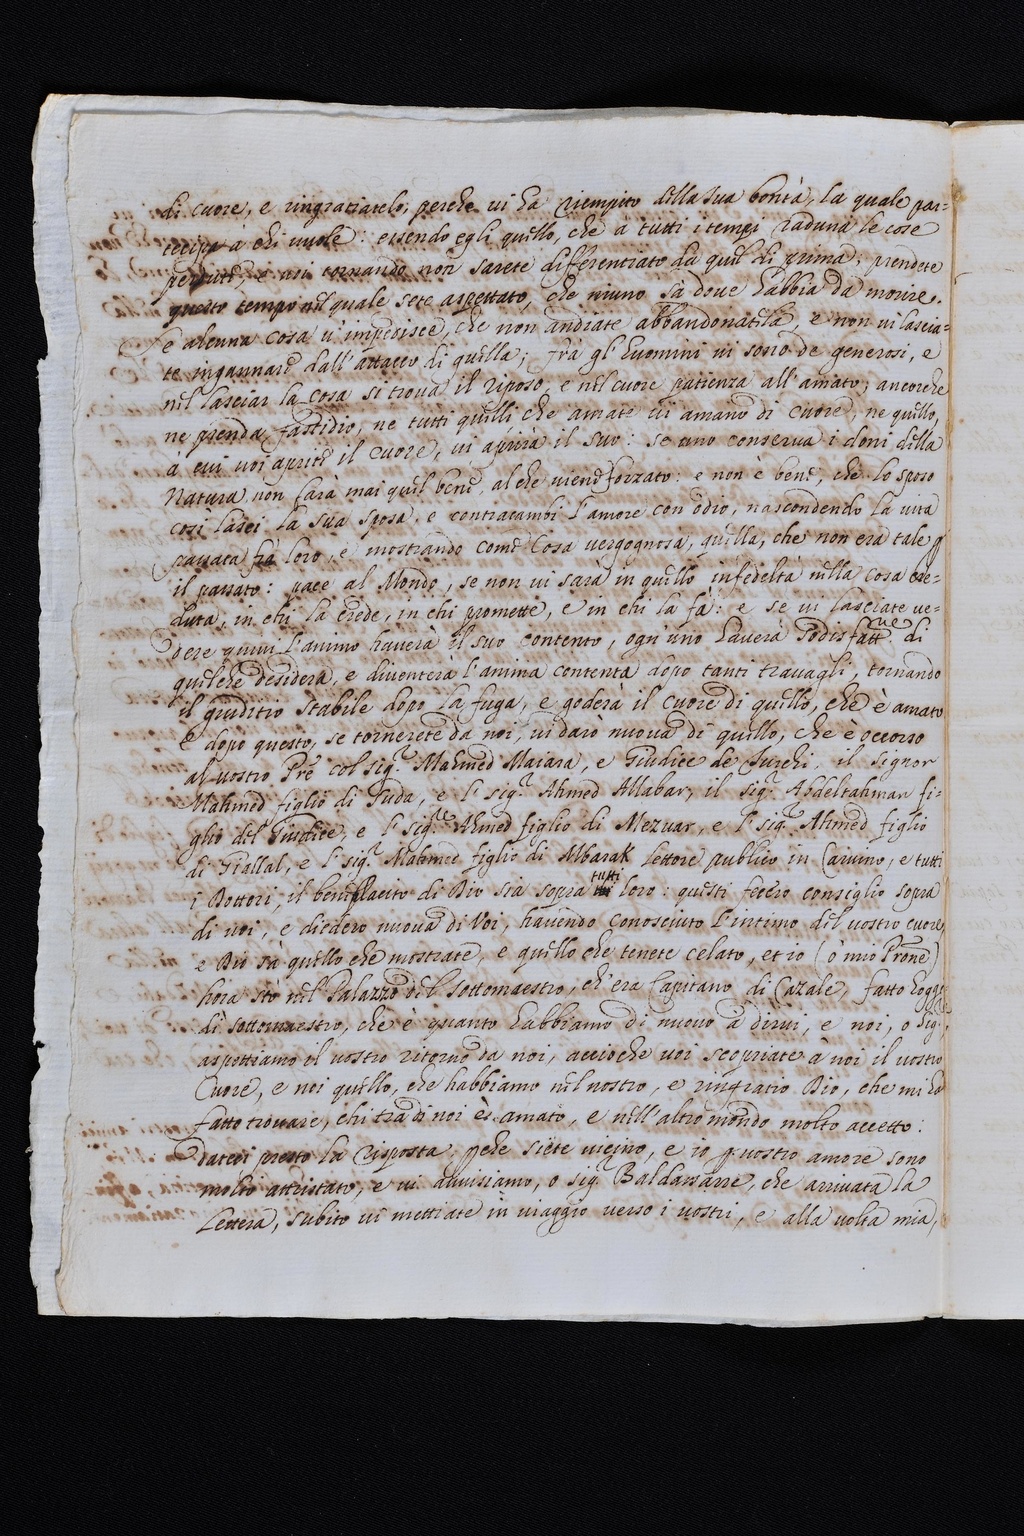 di cuore, e ringratiatelo, perche vi hà riempito della sua bontà, la quale par=
tecipa à chi vuole: essendo egli quello, che à tutti i tempi raduna le cose
perdute, e così tornando non sarete differentiato da quel di prima; prendete
questo tempo nel quale sete aspettato, che niuno sà dove habbia da morire.
e alcuna cosa v'impedisce, che non andiate abbandonatela, e non vi lascia=
te ingannare dall'attacco di quella; frà gl'huomini vi sono de generosi, e
nel lasciar la cosa si trova il riposo, e nel cuore patienza all'amato; ancorche
ne prenda fastidio, ne tutti quelli che amate vi amano di cuore, ne quello,
à cui voi aprite il cuore, vi aprirà il suo: se uno conserva i doni della
Natura non farà mai quel bene, al che viene forzato: e non è bene, che lo sposo
così lasci la sua sposa, e contracambi l'amore con odio, nascondendo la vita
passata frà loro, e mostrando come cosa vergognosa, quella, che non era tale p
il passato: pace al Mondo, se non vi sarà in quello infedeltà nella cosa cre=
duta, in chi la crede, in chi promette, e in chi la fà: e se vi lasciate ve=
dere quivi l'animo haverà il suo contento, ogn'uno haverà sodisfatt.ne di
quelche desidera, e diventerà l'anima contenta dopo tanti travagli, tornando
il giuditio stabile dopo la fuga, e goderà il cuore di quello, che è amato
e dopo questo, se tornerete da noi, vi darò nuova di quello, che è occorso
al vostro Pre col sig.r Mahmed Maiara, e Giudice de Turchi, il signor
Mahmed figlio di Guda, e l sig.r Ahmed Allabar, il sig.r Abdeltahman fi=
glio del Giudice, e l sig.re Ahmed figlio di Mezuar, e l sig.r Ahmed figlio
di Giallal, e l sig.r Mahmed figlio di Mbarak Lettore publico in Caruino, e tutti
i Dottori, il beneplacito di Dio sia sopra tutti loro: questi fecero consiglio sopra
di voi, e diedero nuova di Voi, havendo conosciuto l'intimo del vostro cuore,
e Dio sà quello che mostrate, e quello che tenete celato, et io (ò mio Prone)
hora stò nel Palazzo del sottomaestro, ch'era Capitano di Cazale, fatto hogg
di sottomaestro, che è quanto habbiamo di nuovo à dirvi, e noi, o sig.r,
aspettiamo il vostro ritorno da noi, accioche voi scopriate à noi il vostro
Cuore, e noi quello, che habbiamo nel nostro, e ringratio Dio, che mi hà
fatto trovare, chi trà di noi è amato, e nell'altro mondo molto accetto:
dateci presto la risposta, pche siete vicino, e io p vostro amore sono
molto attristato, e vi avvisiamo, o sig.r Baldassarre, che arrivata la
Lettera, subito vi mettiate in viaggio verso i vostri, e alla volta mia,